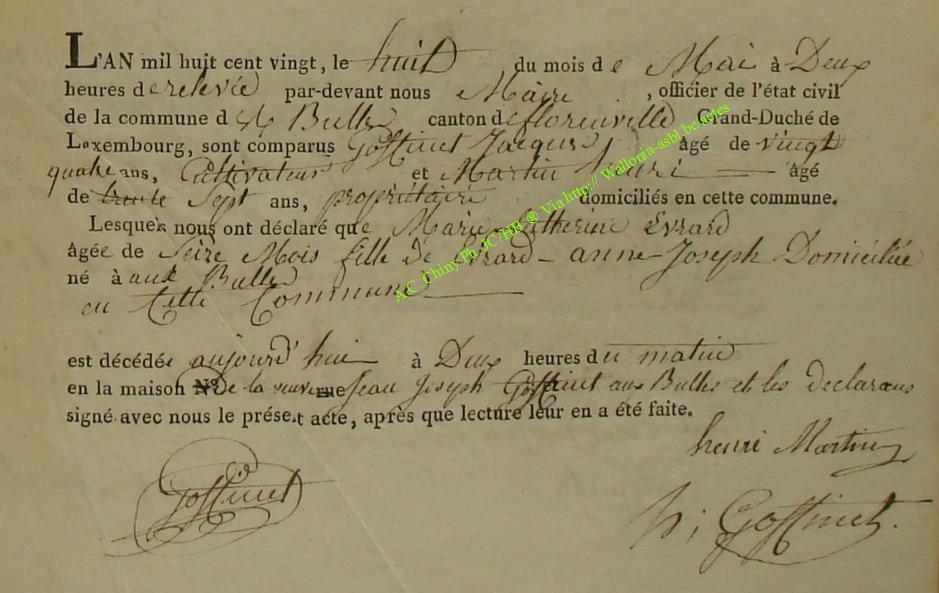 L'AN mil huit cent vingt, le huit du mois de Mai à Deux
heures de relevée par-devant nous Maire, officier de l'état civil
de la commune des Bulles canton de florenville Grand-Duché de
Luxembourg, sont comparus Goffinet Jacques âgé de vingt
quatre ans, Cultivateur et Martin henri âgé
de trente Sept ans, propriétaire domiciliés en cette commune.
Lesquels nous ont déclaré que Marie Catherine Evrard
agée de Seize Mois fille de Evrard - anne Joseph Domiciliée
né à aux Bulles
en Cette Commune
est décédée aujourd'hui à Deux heures du matin
en la maison N° de la veuve Jean Joseph Goffinet aux Bulles et les declarans
signé avec nous le présent acte, après que lecture leur en a été faite.
henri Martin
Goffinet
Goffinet.
A.C. Chiny Ph JC/HB @ Via http:// Wallonia-asbl.be/actes